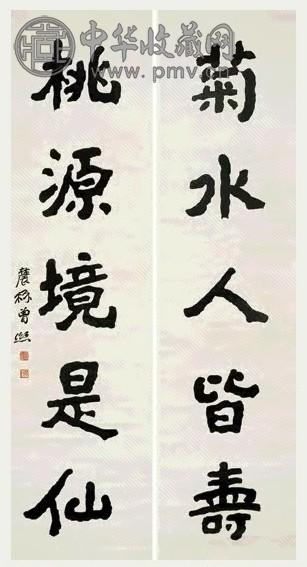 中华收藏网
www.pmv.cn
菊水人皆壽
桃源境是仙
農髯曾熙